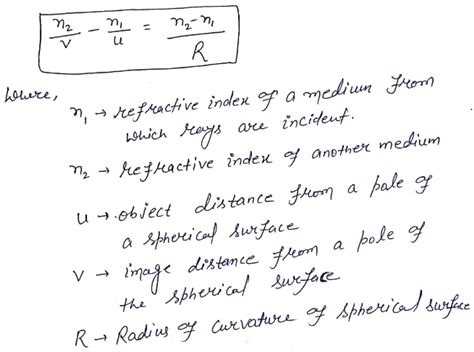 n₂/v - n₁/u = n₂-n₁/R
where,
n₁ → refractive index of a medium from
which rays are incident.
n₂ → refractive index of another medium
u → object distance from a pole of
a spherical surface
v → image distance from a pole of
the spherical surface
R → Radius of curvature of spherical surface